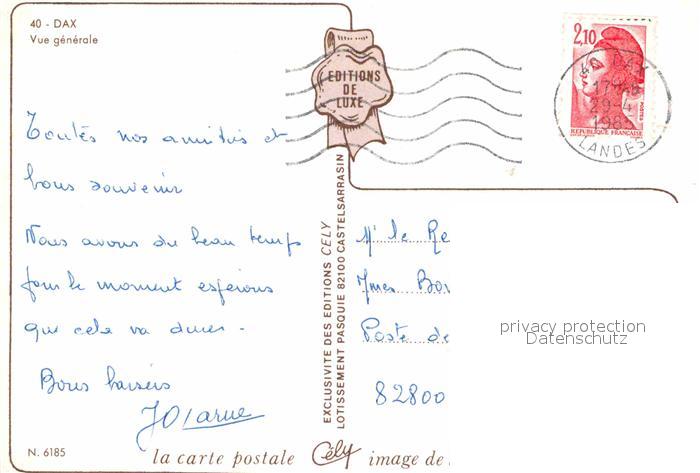 40 - DAX
Vue générale
EDITIONS
DE
LUXE
2,10
POSTES
REPUBLIQUE FRANÇAISE
40 DAX
17H
29-4
198
LANDES
Toutes nos amitiés et
bons souvenir
Nous avons du beau temps
pour le moment espérons
que cela va durer -
Bons baisers
EXCLUSIVITE DES EDITIONS CELY
LOTISSEMENT PASQUIE 82100 CASTELSARRASIN
Mr le Re
Mmes Bor
Poste de
82800
privacy protection
Datenschutz
N. 6185
la carte postale Cély image de